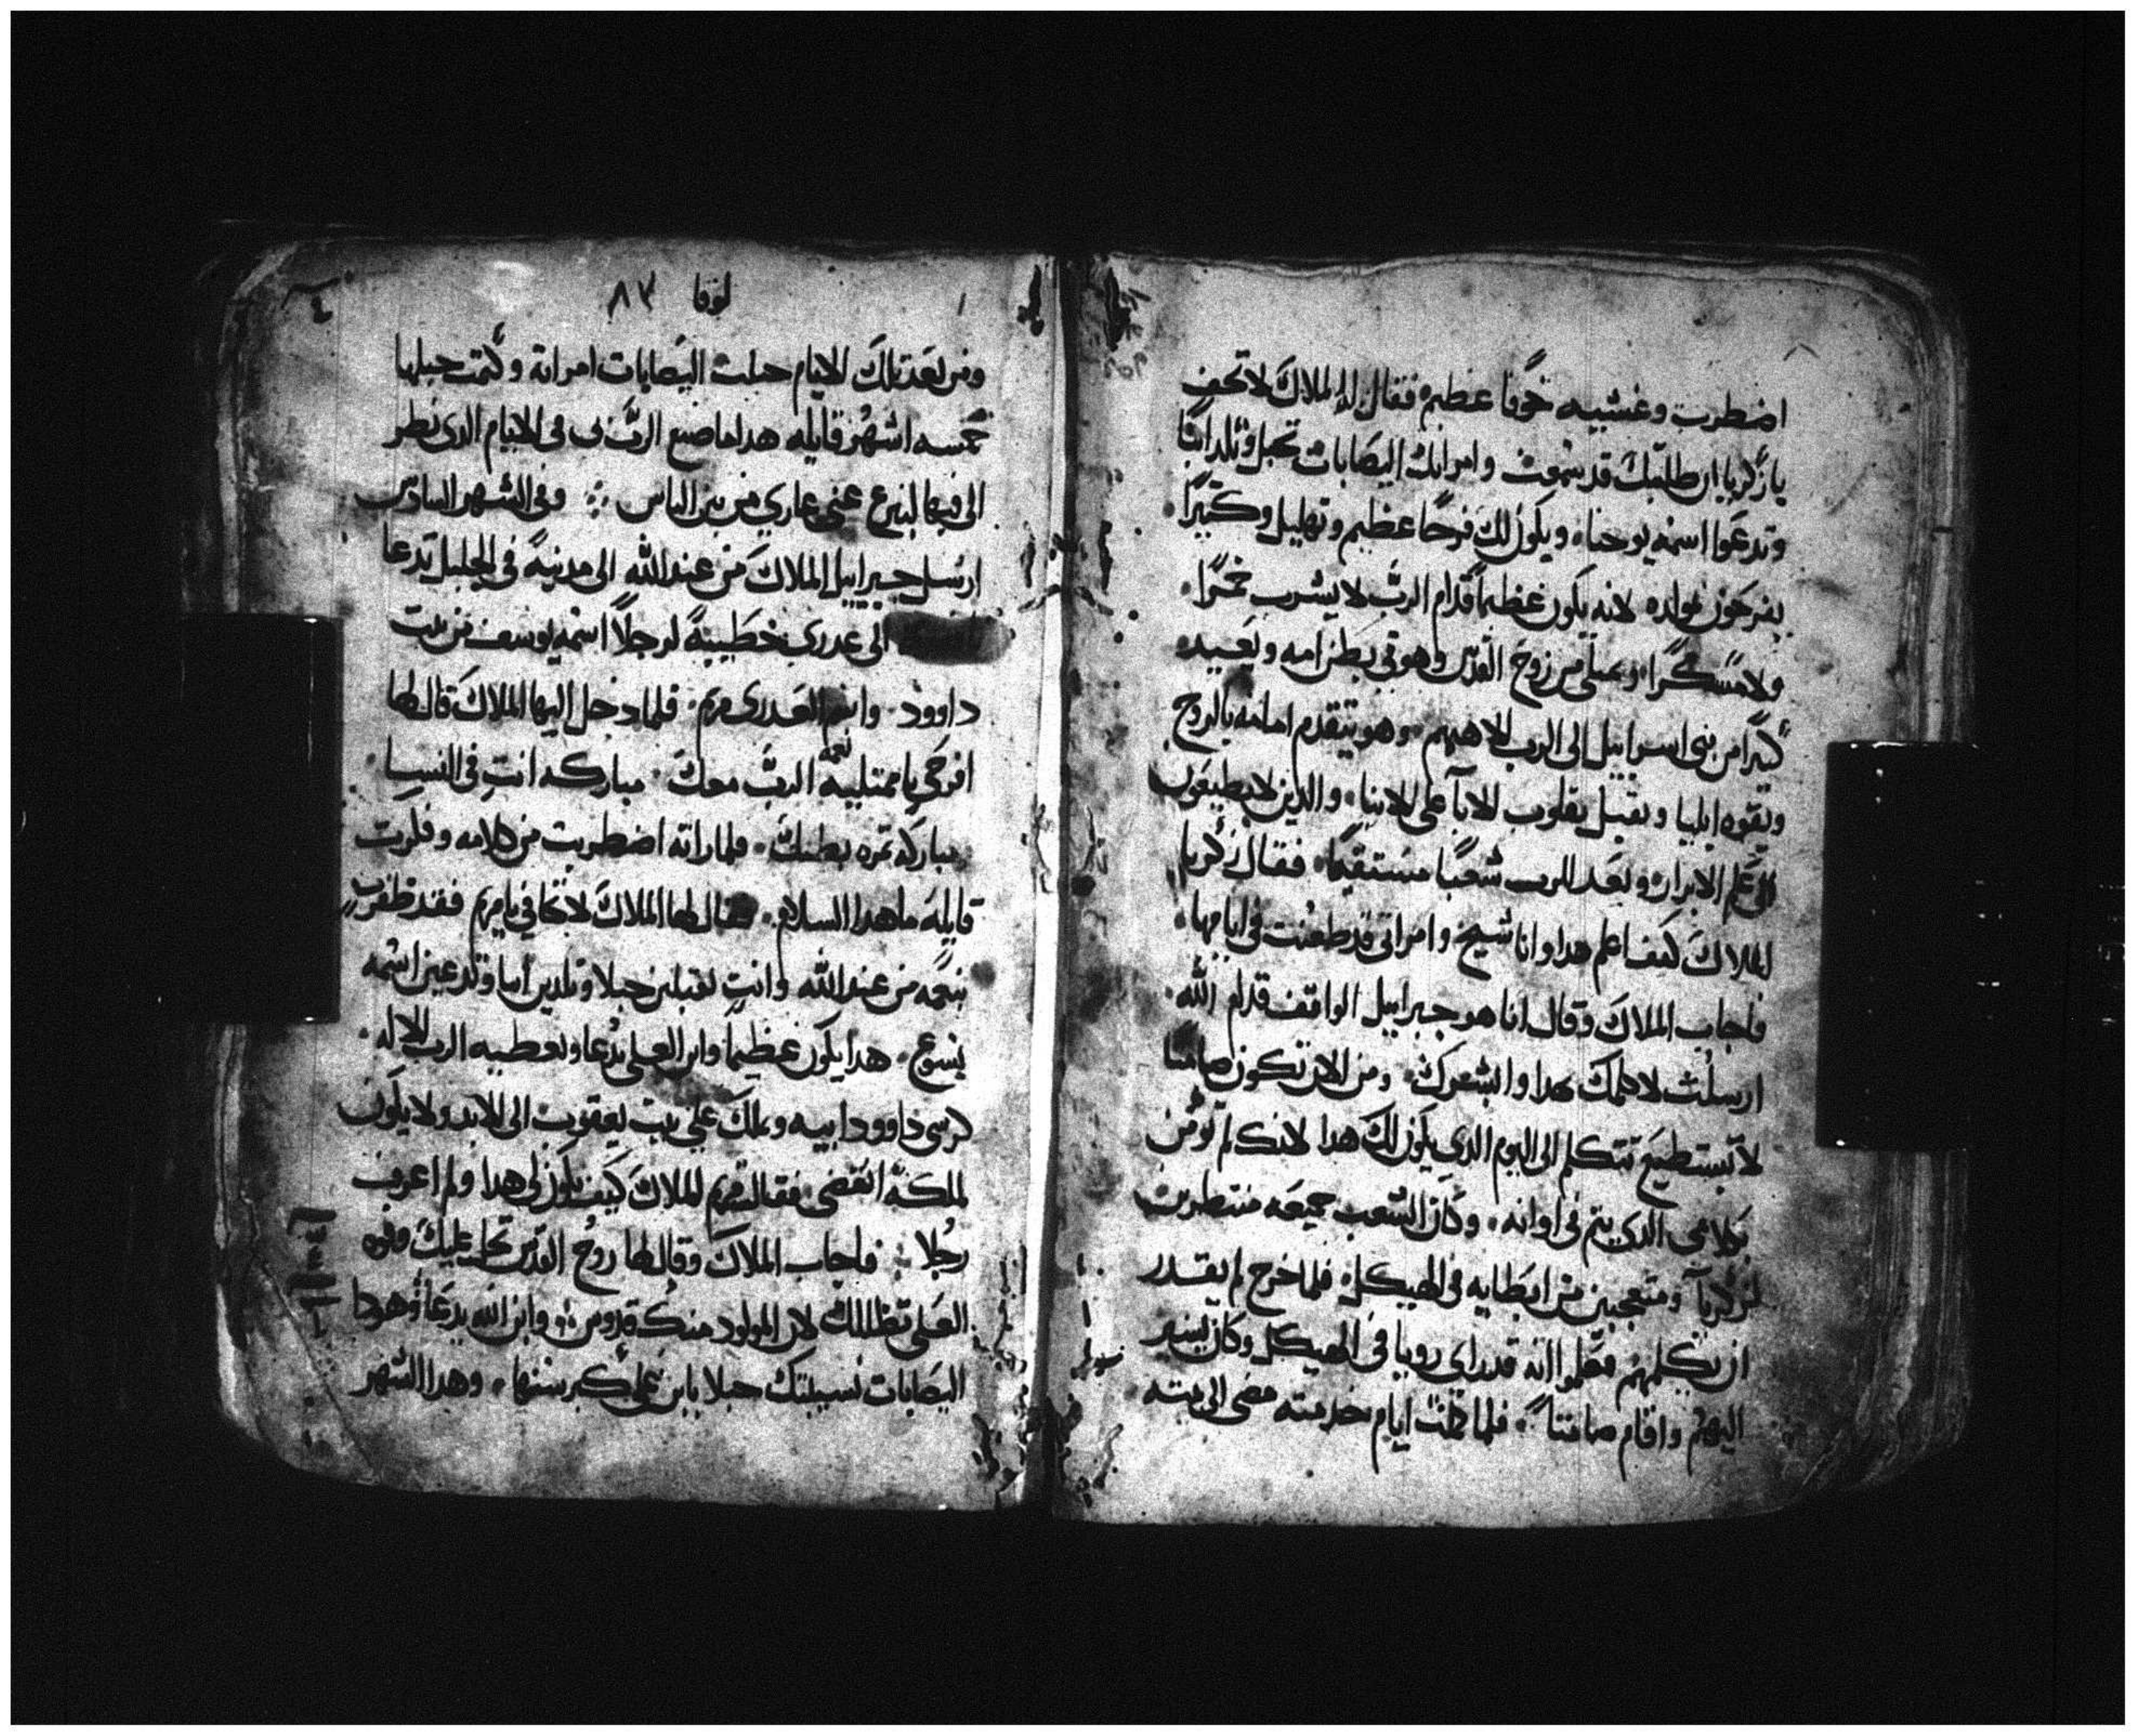 اضطرب وغشييه خوفا عظيم فقال له الملاك لا تخف
يا زكريا ان طلبتك قد سمعت وامراتك اليصابات تحبل وتلد ابنا
وتدعوا اسمه يوحنا ويكون لك فرحا عظيم وتهليل وكثيرا
يفرحون بمولده لانه يكون عظيما قدام الرب لا يشرب خمرا
ولا مسكرا ويمتلى من روح القدس وهو في بطن امه ويعيد
كثيرا من بنى اسراييل الى الرب الاههم وهو يتقدم امامه بالروح
وبقوه ايليا ويقبل بقلوب الابا على الابنا والذين لا يطيعون
الى علم الابرار ويعد للرب شعبا مستقيما فقال زكريا
للملاك كيف اعلم هدا وانا شيخ وامراتى قد طعنت في ايامها
فاجاب الملاك وقال انا هو جبراييل الواقف قدام الله
ارسلت لاكلمك بهدا وابشرك ومن الان تكون صامتا
لا تستطيع تتكلم الى اليوم الدى يكون لك هدا لانك لم تومن
بكلامى الدى يتم فى اوانه وكان الشعب جميعه منتظرين
لزكريا ومتعجبين من ابطايه فى الهيكل فلما خرج لم يقدر
ان يكلمهم فعلموا انه قد راى رويا فى الهيكل وكان يشير
اليهم واقام صامتا فلما كملت ايام خدمته مضى الى بيته
لوقا ٨٣
ومن بعد تلك الايام حبلت اليصابات امراته وكتمت حبلها
خمسه اشهر قايله هدا ما صنع الرب بى فى الايام الدى نظر
الى فيها لينزع عنى عاري من بين الناس وفى الشهر السادس
ارسل جبراييل الملاك من عند الله الى مدينة فى الجليل تدعا
الى عدرى خطيبة لرجلا اسمه يوسف من بيت
داوود واسم العدرى مريم فلما دخل اليها الملاك قال لها
افرحي يا ممتليه نعمه الرب معك مباركه انت فى النسا
مباركه ثمره بطنك فلما راته اضطربت من كلامه وفكرت
قايله ما هدا السلام فقال لها الملاك لا تخافي يا مريم فقد ظفرتي
بنعمه من عند الله وانت تقبلين حبلا وتلدين ابنا وتدعين اسمه
يسوع هدا يكون عظيما وابن العلى يدعا ويعطيه الرب الاله
كرسى داوود ابيه ويملك على بيت يعقوب الى الابد ولا يكون
لملكه انقضى فقالت مريم للملاك كيف يكون لى هدا ولم اعرف
رجلا فاجاب الملاك وقال لها روح القدس تحل عليك وقوه
العلى تظللك لان المولود منك قدوس وابن الله يدعا وهودا
اليصابات نسيبتك حبلا بابن على كبر سنها وهدا الشهر